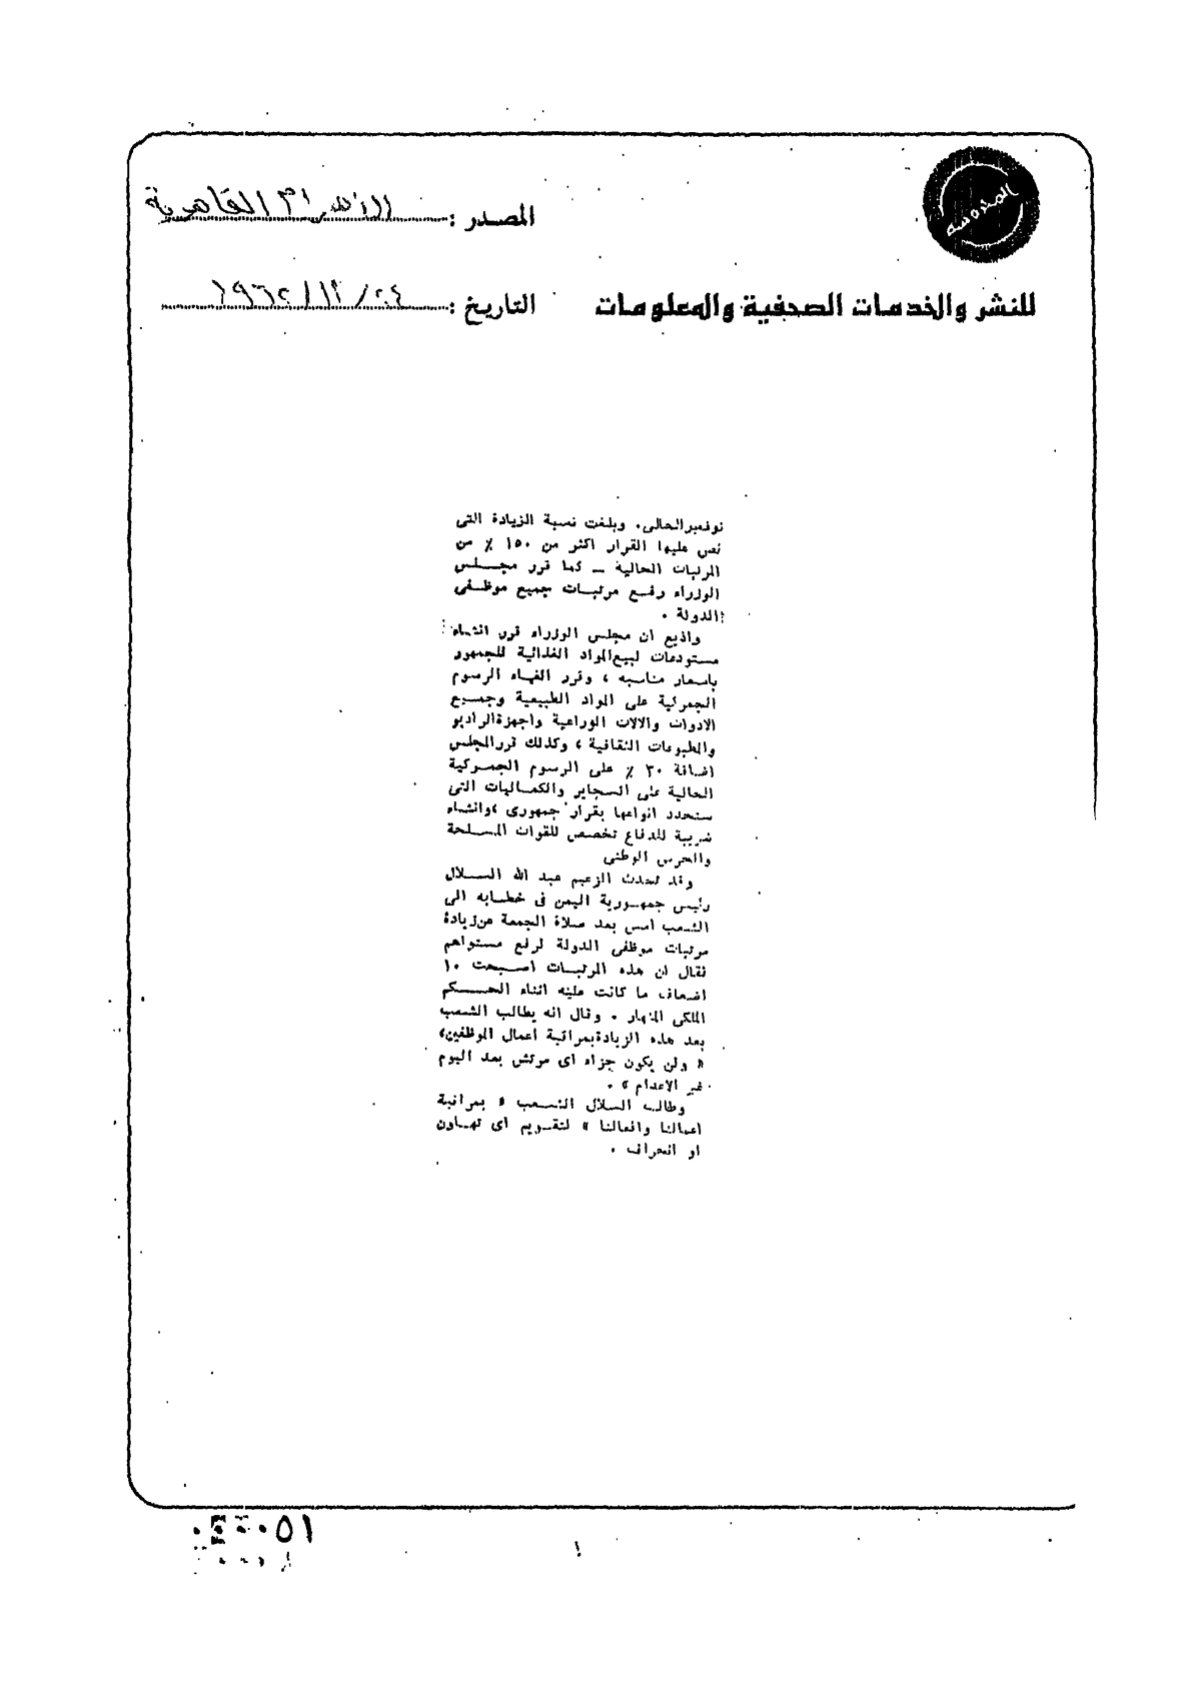 المدوسه
المصدر : الاهرام القاهرية
للنشر والخدمات الصحفية والمعلومات
التاريخ : ٢٤ / ١١ / ١٩٦٢
نوفمبر الحالى. وبلغت نسبة الزيادة التى
نص عليها القرار اكثر من ١٥٠ ٪ من
المرتبات الحالية ــ كما قرر مجـــلس
الوزراء رفـع مرتبـات جميع موظـفى
الدولة .
واذيع ان مجلس الوزراء قرر انشاء
مستودعات لبيع المواد الغذائية للجمهور
باسعار مناسبه ، وقرر الغـاء الرسوم
الجمركية على المواد الطبيعية وجميـع
الادوات والالات الوراعية واجهزة الراديو
والمطبوعات الثقافية ، وكذلك قرر المجلس
اضـافة ٣٠ ٪ على الرسوم الجمـركية
الحالية على السجاير والكمـاليات التى
ستحدد انواعها بقرار جمهورى ، وانشاء
ضريبة للدفاع تخصص للقوات المسـلحة
والحرس الوطنى
وقد تحدث الزعيم عبد الله السـلال
رئيس جمهـورية اليمن فى خطـابه الى
الشعب امس بعد صلاة الجمعة عن زيادة
مرتبات موظفى الدولة لرفع مستواهم
فقال ان هذه المرتبـات اصـبحت ١٠
اضعاف ما كانت عليه اثناء الحـــكم
الملكى المنهار . وقال انه يطالب الشعب
بعد هذه الزيادة بمراقبة اعمال الموظفين،
« ولن يكون جزاء اى مرتش بعد اليوم
غير الاعدام » .
وطالب السلال الشـعب « بمراقبة
اعمالنا وافعالنا » لتقـويم اى تهـاون
او انحراف .
١